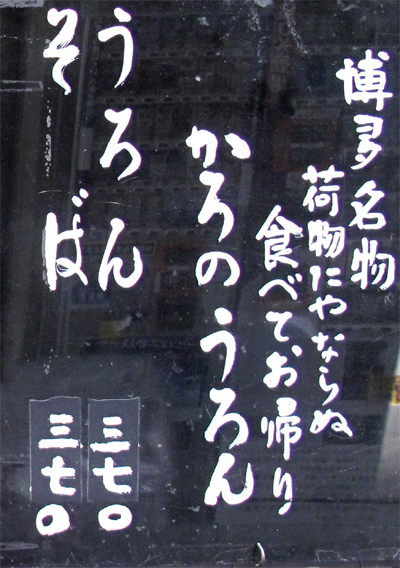 博多名物
荷物にやならぬ
食べてお帰り
かろのうろん
うろん 三七〇
そば 三七〇